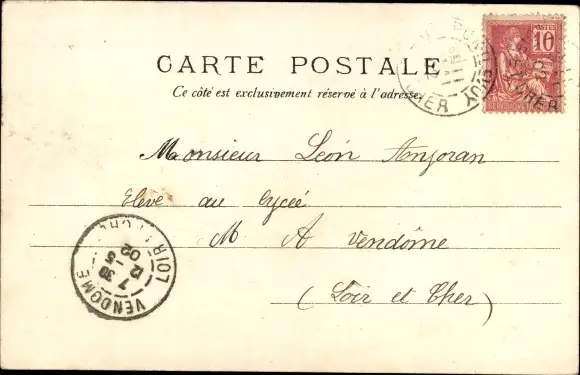 CARTE POSTALE
Ce côté est exclusivement réservé à l'adresse
POSTES
10
CHER
Monsieur Léon Anjoran
Elève au lycée
M A Vendôme
(Loir et Cher)
VENDOME
7 30
12 -5
02
LOIR